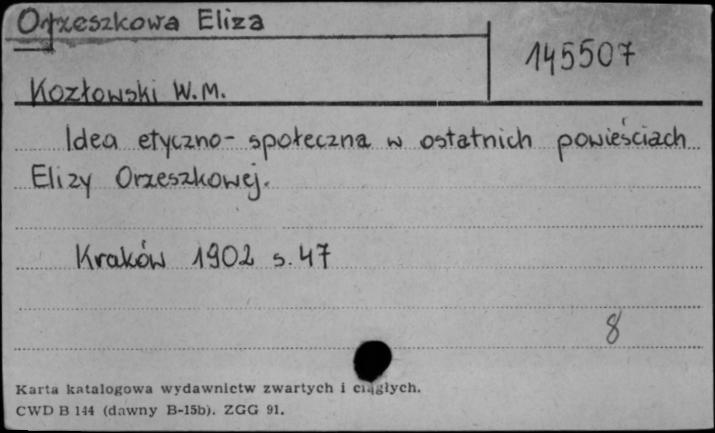 Orzeszkowa Eliza
145507
Kozłowski W.M.
Idea etyczno-społeczna w ostatnich powieściach
Elizy Orzeszkowej.
Kraków 1902 s. 47
8
Karta katalogowa wydawnictw zwartych i ciągłych.
CWD B 144 (dawny B-15b). ZGG 91.